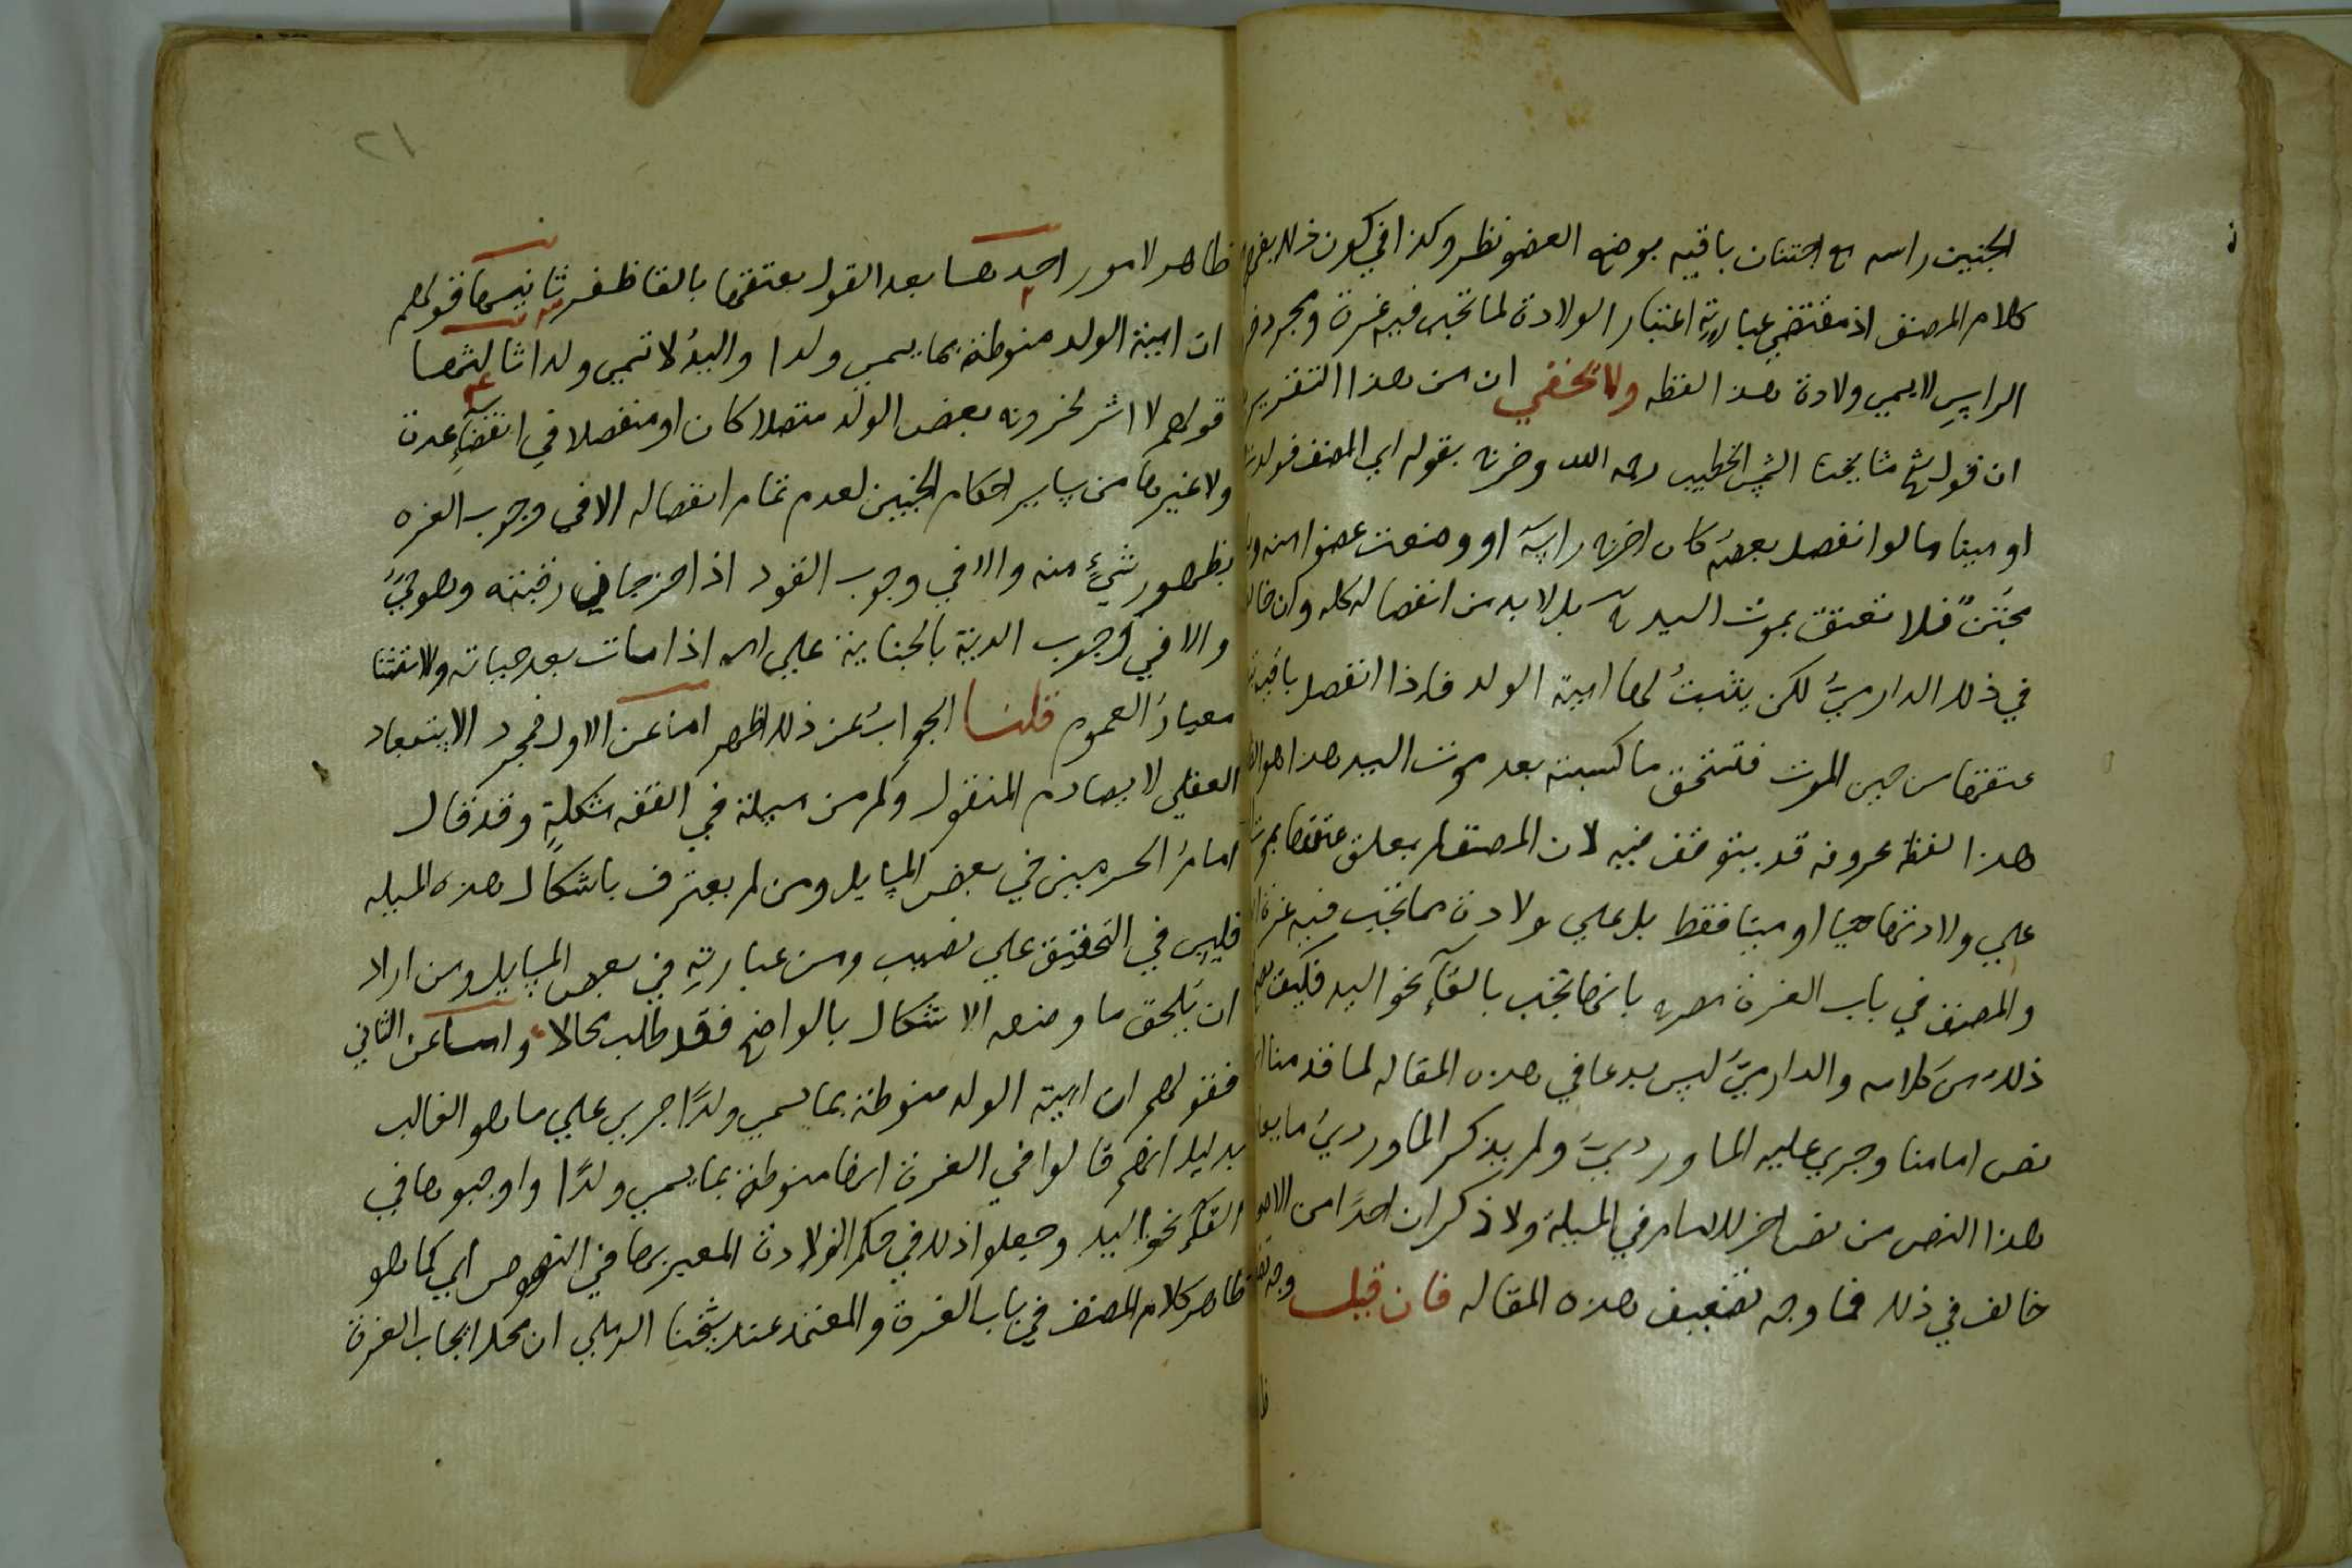 الجنين راسه مع اجتنان باقيه بوضع العضو نظر وكذا في كون ذلك
كلام المصنف اذ مقتضى عبارته اعتبار الولادة لما تجب فيه غرة ومجرد
الراس لا يسمى ولادة هذا لفظه ولا يخفي ان من هذا التقرير
ان قول شيخ مشايخنا الشمس الخطيب رحمه الله وخرج بقوله اي المصنف فولدت
او ميتا ما لو انفصل بعضه كان اخرج راسه او وضعت عضوا منه
مجتنٌ فلا تعتق بموت السيد بل لا بد من انفصال كله وان خالف
في ذلك الدارميُّ لكن يثبتُ لها امية الولد فاذا انفصل باقيه
عتقها من حين الموت فتستحق ما كسبته بعد موت السيد هذا هو
هذا لفظه بحروفه قد يتوقف فيه لان المصنف لم يعلق عتقها بموت
علي ولادتها حيا او ميتا فقط بل علي ولادة ما تجب فيه غرة
والمصنف في باب الغرة صرح بانها تجب بالقآء نحو اليد فكيف
ذلك من كلامه والدارميُّ ليس بدعا في هذه المقاله لما قدمنا
نص امامنا وجري عليه الماورديُّ ولم يذكر الماورديُ ما
هذا النص من نص اخر للامام في المسيلة ولا ذكر ان احدًا من
خالف في ذلك فما وجه تضعيف هذه المقاله فان قيل وجه
٢١
ظاهر لامور احدها بعد القول بعتقها بالقا ظفر ثانيها قولهم
ان امية الولد منوطة بما يسمي ولدا واليدُ لا تسمي ولدا ثالثها
قولهم لا اثر لخروج بعض الولد متصلا كان او منفصلا في انقضآء عدة
ولا غيرها من ساير احكام الجنين لعدم تمام انفصاله الا في وجوب الغره
بظهور شيٍ منه والا في وجوب القود اذا حز جانٍ رقبته وهو حيٌ
والا في وجوب الدية بالجناية علي امه اذا مات بعد حياته والاستثنا
معيارُ العموم قلنا الجوابُ عن ذلك ظهر اما عن الاول فمجرد الاستبعاد
العقلي لا يصادم المنقول وكم من مسيلة في الفقه مشكلةٍ وقد قال
امامُ الحرمين في بعض المسايل ومن لم يعترف باشكال هذه المسيله
فليس في التحقيق علي نصيب ومن عبارته في بعض المسايل ومن اراد
ان يُلحق ما وضعه الاشكال بالواضح فقد طلب محالا واما عن الثاني
فقولهم ان امية الولد منوطة بما يسمي ولدًا جري علي ما هو الغالب
بدليل انهم قالوا في الغرة انها منوطة بما يسمي ولدًا واوجبوها في
القآء نحو اليد وجعلوا ذلك في حكم الولادة المعبر بها في النصوص اي كما هو
ظاهر كلام المصنف في باب الغرة والمعتمد عند شيخنا الرملي ان محل ايجاب الغرة